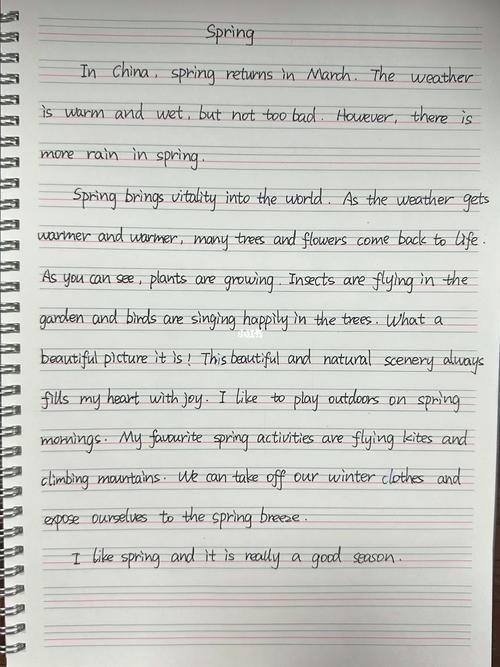 Spring
In China, spring returns in March. The weather
is warm and wet, but not too bad. However, there is
more rain in spring.
Spring brings vitality into the world. As the weather gets
warmer and warmer, many trees and flowers come back to life.
As you can see, plants are growing. Insects are flying in the
garden and birds are singing happily in the trees. What a
小红书
beautiful picture it is! This beautiful and natural scenery always
fills my heart with joy. I like to play outdoors on spring
mornings. My favourite spring activities are flying kites and
climbing mountains. We can take off our winter clothes and
expose ourselves to the spring breeze.
I like spring and it is really a good season.